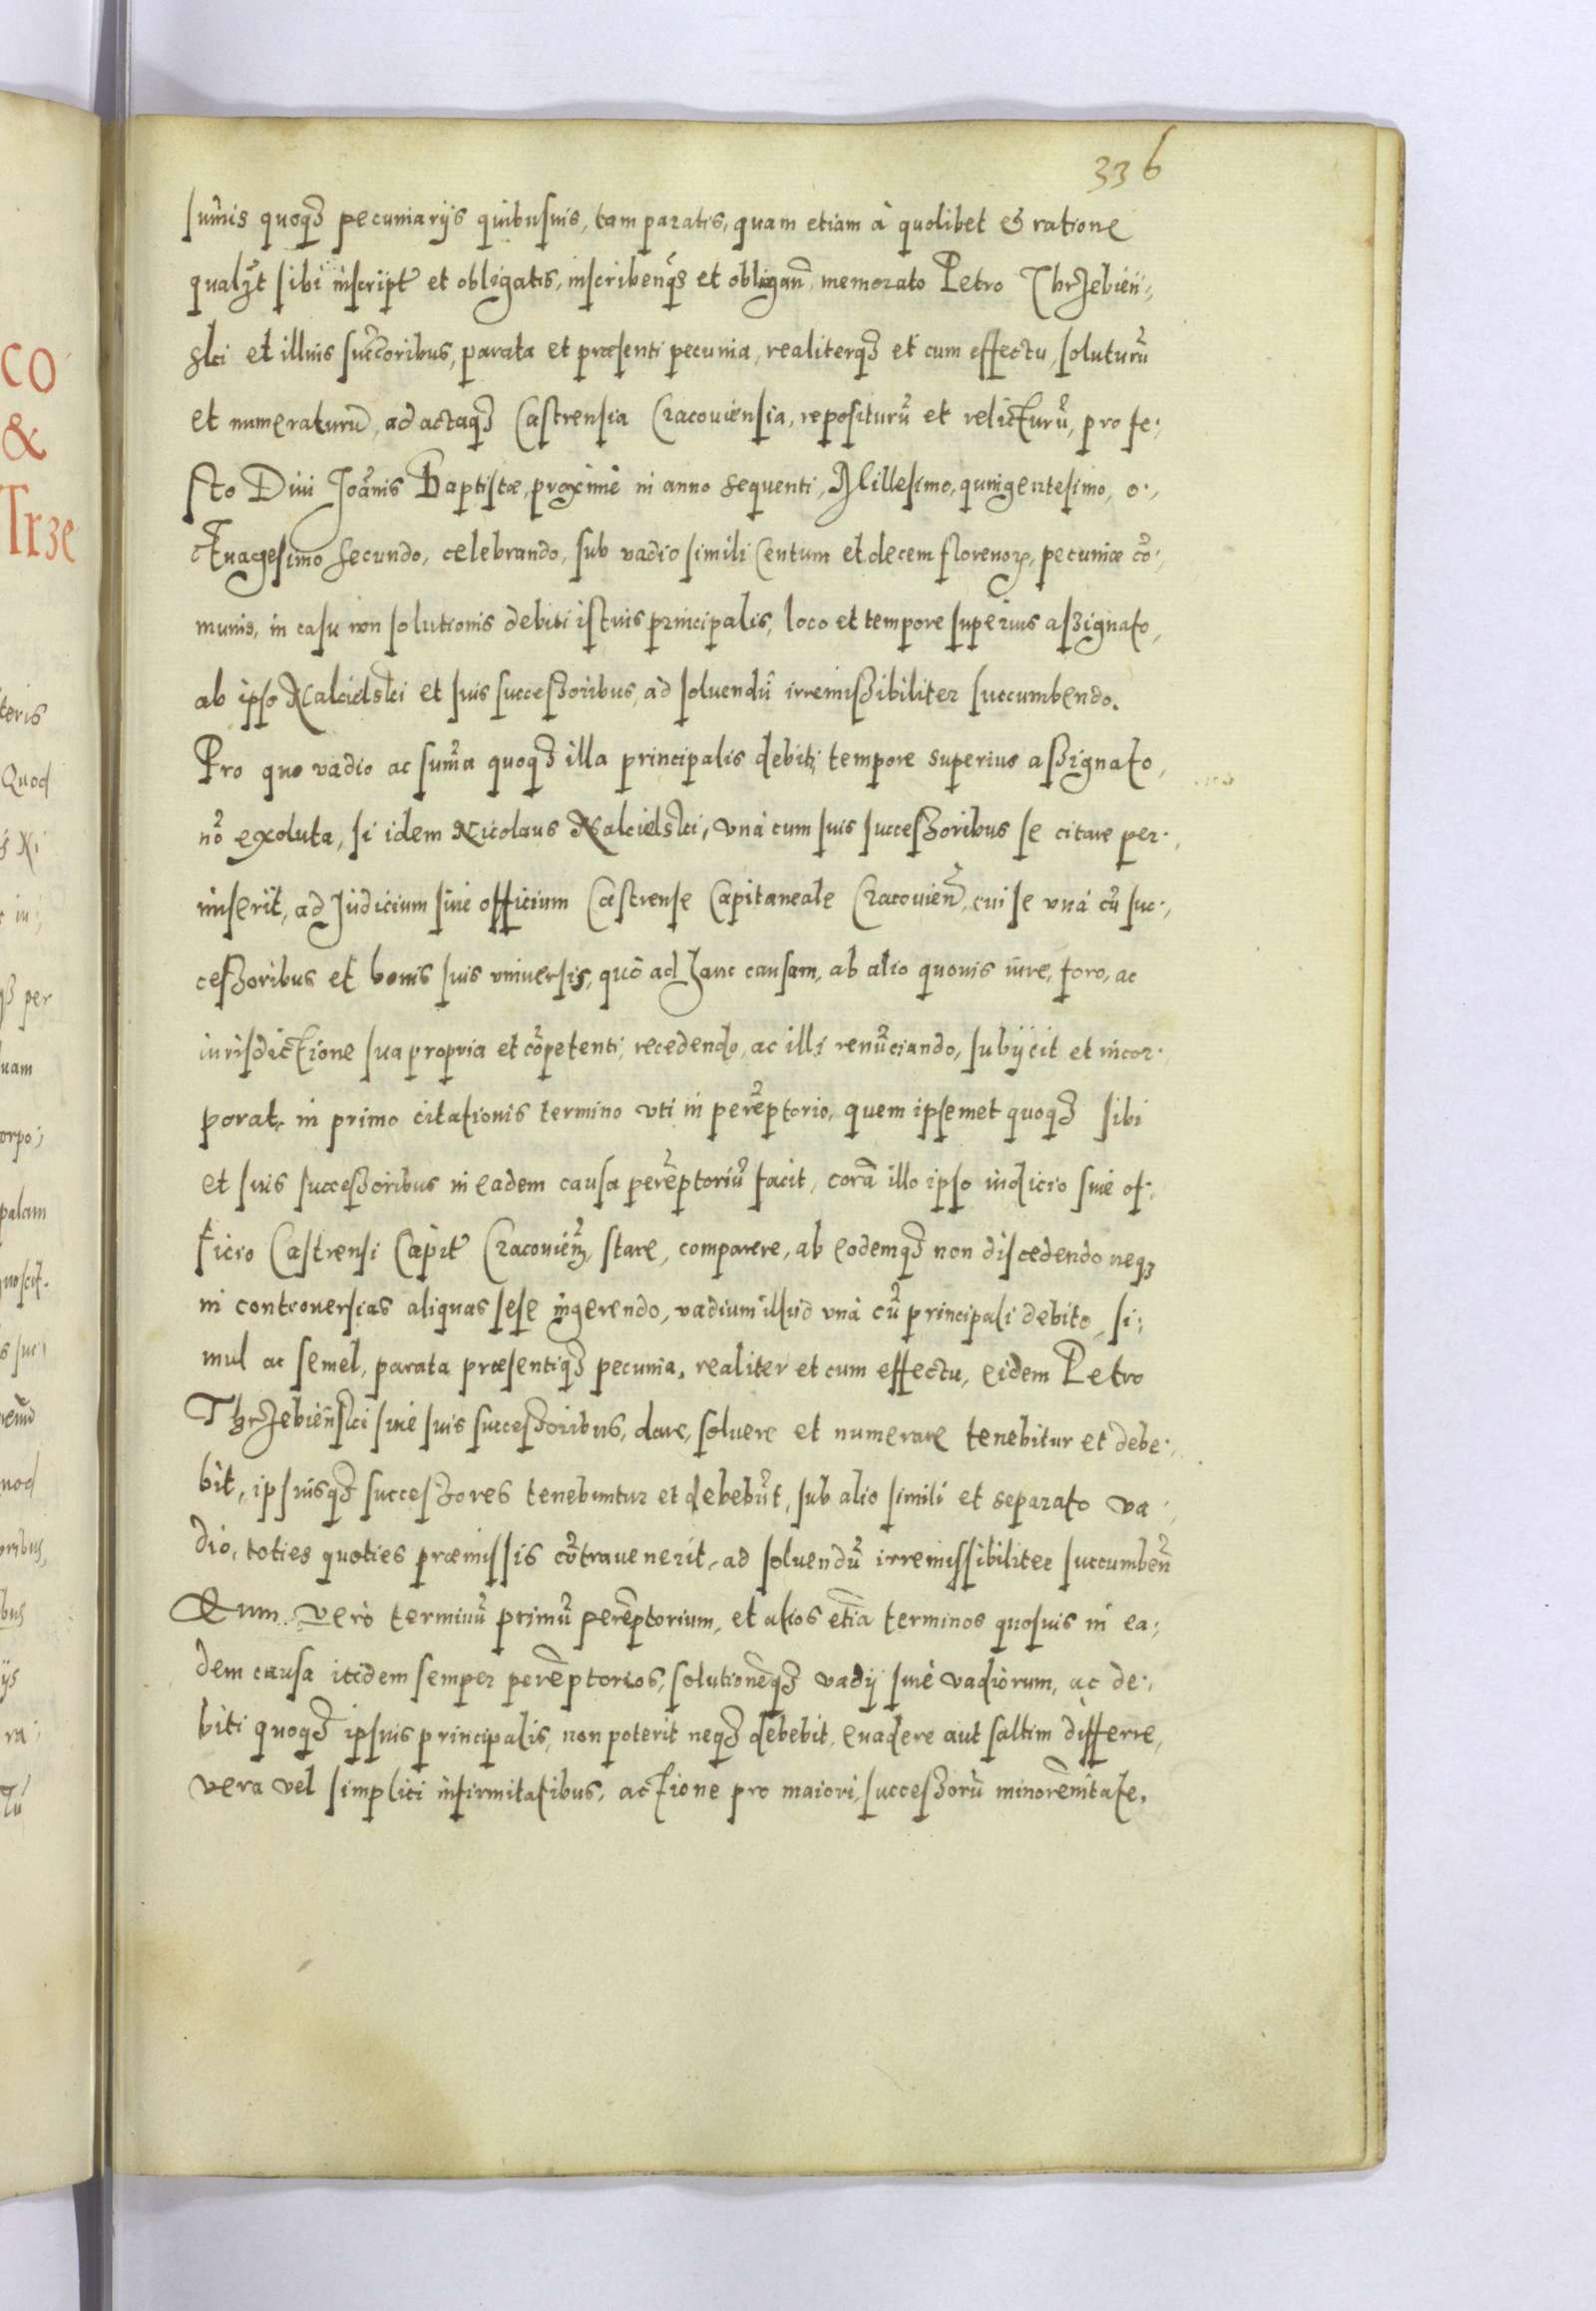 336
sum̃is quoqȝ pecuniarijs quibusuis, tam paratis, quam etiam à quolibet & ratione
qualr̃t sibi inscript̃ et obligatis, inscribenq̃s et obligan̄, memorato Petro Thrzebień;
ski et illius succ̃oribus, parata et præsenti pecunia, realiterqȝ et cum effectu, soluturũ
et numeraturũ, ad actaqȝ Castrensia Cracouiensia, repositurũ et relicturũ, pro fe;
sto Diui Joãnis Baptistæ, proximè in anno sequenti, Millesimo, quingentesimo, o;
ctuagesimo secundo, celebrando, sub vadio simili Centum et decem florenoꝝ, pecuniæ cõ;
munis, in casu non solutionis debiti istuis principalis, loco et tempore superius aßignato,
ab ipso Nalcielski et suis succeßoribus, ad soluendũ irremißibiliter succumbendo.
Pro quo vadio ac sum̃a quoqȝ illa principalis debiti, tempore superius aßignato,
nõ exoluta, si idem Nicolaus Nalcielski, vnà cum suis succeßoribus se citare per;
miserit, ad Judicium siue officium Castrense Capitaneale Cracouień, cui se vnà cũ suc;
ceßoribus et bonis suis vniuersis, quò ad hanc causam, ab alio quouis iure, foro, ac
iurisdictione sua propria et cõpetenti, recedendo, ac illi renũciando, subijcit et incor;
porat, in primo citationis termino vti in perẽptorio, quem ipsemet quoqȝ sibi
et suis succeßoribus in eadem causa perẽptoriũ facit, corã illo ipso iudicio siue of;
ficio Castrensi Capit̃ Cracouieñ, stare, comparere, ab eodemqȝ non discedendo neqȝ
in controuersias aliquas sese ingerendo, vadium illud vnà cũ principali debito, si;
mul ac semel, parata præsentiqȝ pecunia, realiter et cum effectu, eidem Petro
Thrzebieński siue suis succeßoribus, dare, soluere et numerare tenebitur et debe;
bit, ipsiusqȝ succeßores tenebuntur et debebũt, sub alio simili et separato va;
dio, toties quoties præmissis cõtrauenerit, ad soluendũ irremissibiliter succumbeñ
Quem verò terminũ primũ perẽptorium, et alios etiã terminos quosuis in ea;
dem causa itidem semper perẽptorios, solutionẽqȝ vadij siuè vadiorum, ac de;
biti quoqȝ ipsius principalis, non poterit neqȝ debebit, euadere aut saltim differre,
vera vel simplici infirmitatibus, actione pro maiori, succeßorũ minorẽnitate,